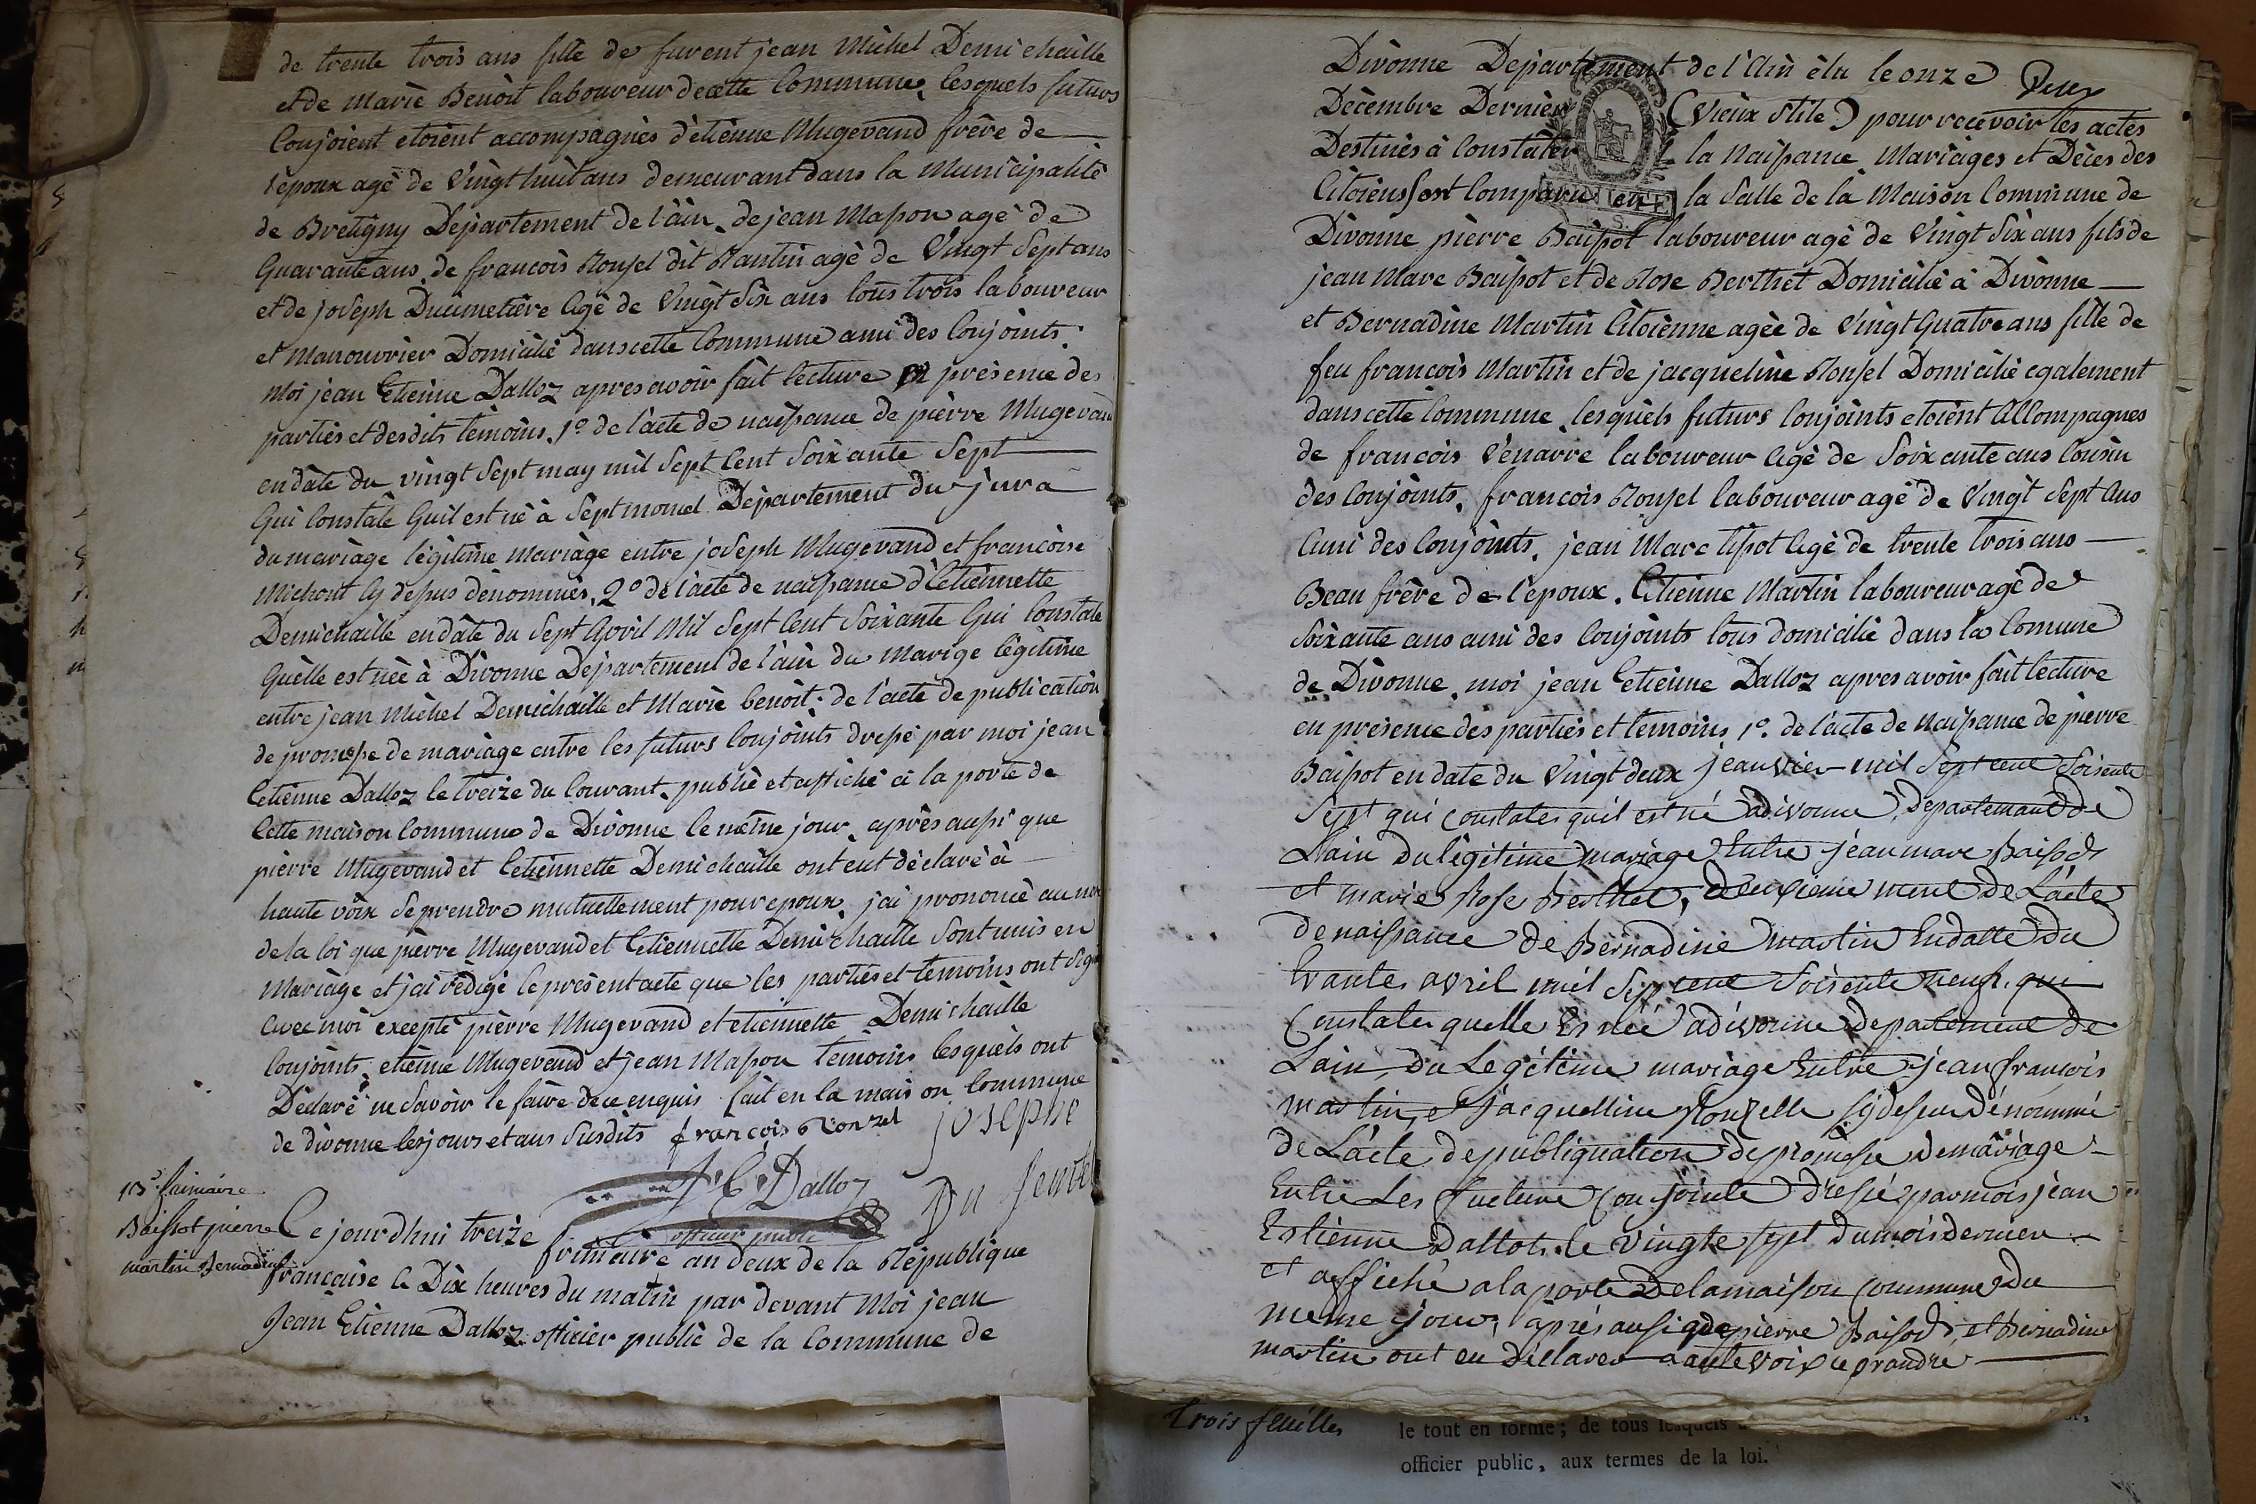 de trente trois ans fille de furent jean Michel Demichaille
et de Marie Benoit laboureur de cette Commune, lesquels futurs
Conjoient etoient accompagnés d'etienne Mugevand frère de
l'époux agé de Vingt huit ans demeurant dans la Municipalité
de Bretigny Departement de l'ain, de jean Masson agé de
Quarante ans, de francois Rousel dit Rantin agé de Vingt Sept ans
et de joseph Ducimetière Agé de Vingt Six ans tous trois laboureur
et Manouvrier Domicilié dans cette Commune ami des Conjoints.
Moi jean Etienne Dalloz apres avoir fait lecture en présence des
parties et desdits temoins. 1º de l'acte de naissance de pierre Mugevand
en date du vingt Sept may mil Sept Cent Soixante Sept
Qui Constate Quil est né à Septmoncel Département du jura
du mariage légitime mariage entre joseph Mugevand et francoise
Michont Cy dessus dénommés. 2º de l'acte de naissance d'Etiennette
Demichaille en date du Sept Avril Mil Sept Cent Soixante Qui Constate
Quèlle est née à Divonne Departement de l'ain du Marige légitime
entre jean Michel Demichaille et Marie benoit. de l'acte de publication
de promesse de mariage entre les futurs Conjoints dressé par moi jean
Etienne Dalloz le treize du Courant, publié et affiché à la porte de
Cette maison Commune de Divonne le même jour, après aussi que
pierre Mugevand et Etiennette Demichaille ont eut déclaré à
haute voix se prendre mutuellement pour epoux, j'ai prononcé au nom
de la loi que pierre Mugevand et Etiennette Demichaille Sont unis en
Mariage et j'ai rédigé le présent acte que les parties et temoins ont Signé
avec moi excepté pierre Mugevand et etiennette Demichaille
Conjoints, etienne Mugevand et jean Masson temoins lesquels ont
Déclaré ne Savoir le faire de ce enquis fait en la maison Commune
de divonne les jours et ans Susdits francois Ronzel josephe
J. E. Dalloz Du
officier public
13e frimaire
Baissot pierre
martin Bernadine
Ce jourdhui treize frimaire an deux de la République
francaise à Dix heures du matin par devant Moi jean
Jean Etienne Dalloz officier public de la Commune de
Divonne Departement de l'Ain élu le onze
Décembre Dernier (Vieux Stile) pour recevoir les actes
Destinés à Constater la Naissance Mariages et Décès des
Citoiens sont Comparu en la Salle de la Maison Commune de
Divonne pierre Baissot laboureur agé de Vingt Six ans fils de
jean Marc Baissot et de Rose Berthet Domicilié à Divonne
et Bernadine Martin Citoienne agée de Vingt Quatre ans fille de
feu françois Martin et de jacqueline Rousel Domicilié egalement
dans cette Commune, lesquels futurs Conjoints etoient Accompagnes
de francois Vénarre laboureur Agé de Soixante ans Cousin
des Conjoints, francois Rousel laboureur agé de Vingt Sept Ans
Ami des Conjoints, jean Marc tissot Agé de trente trois ans
Beau frère de l'epoux. Etienne Martin laboureur agé de
Soixante ans ami des Conjoints tous domicilié dans la Comune
de Divonne, moi jean Etienne Dalloz apres avoir fait lecture
en presence des parties et temoins 1º. de l'acte de Naissance de pierre
Baissot en date du Vingt deux jeanvier mil Sept cent Soisente
Sept qui constate quil est né a divonne, departemant de
Lain du légitime mariage Entre jean marc Baisod
et marie Rose Berthet, deuxieme ment de L'acte
de naissance de Bernadine martin En datte du
trante avril mil Sept cent Soisente neuf. qui
Constate quelle Es née a divonne departement de
Lain du Legitime mariage Entre jean francois
martin et jacquelline Rouzelle sy desue dénommé
de L'acte de publiquation de promesse de mariage
Entre Les fueture Conjointe dressé par mois jean
Estienne Dallot. le Vingte sept du mois dernier
et affiché a la porte De la maison Commune du
meme jour, aprés ausi que pierre Baisod, et Bernadine
martin ont eu Déclarer a aute voix ce prandre
trois feuilles
le tout en forme; de tous lesquels
officier public, aux termes de la loi.